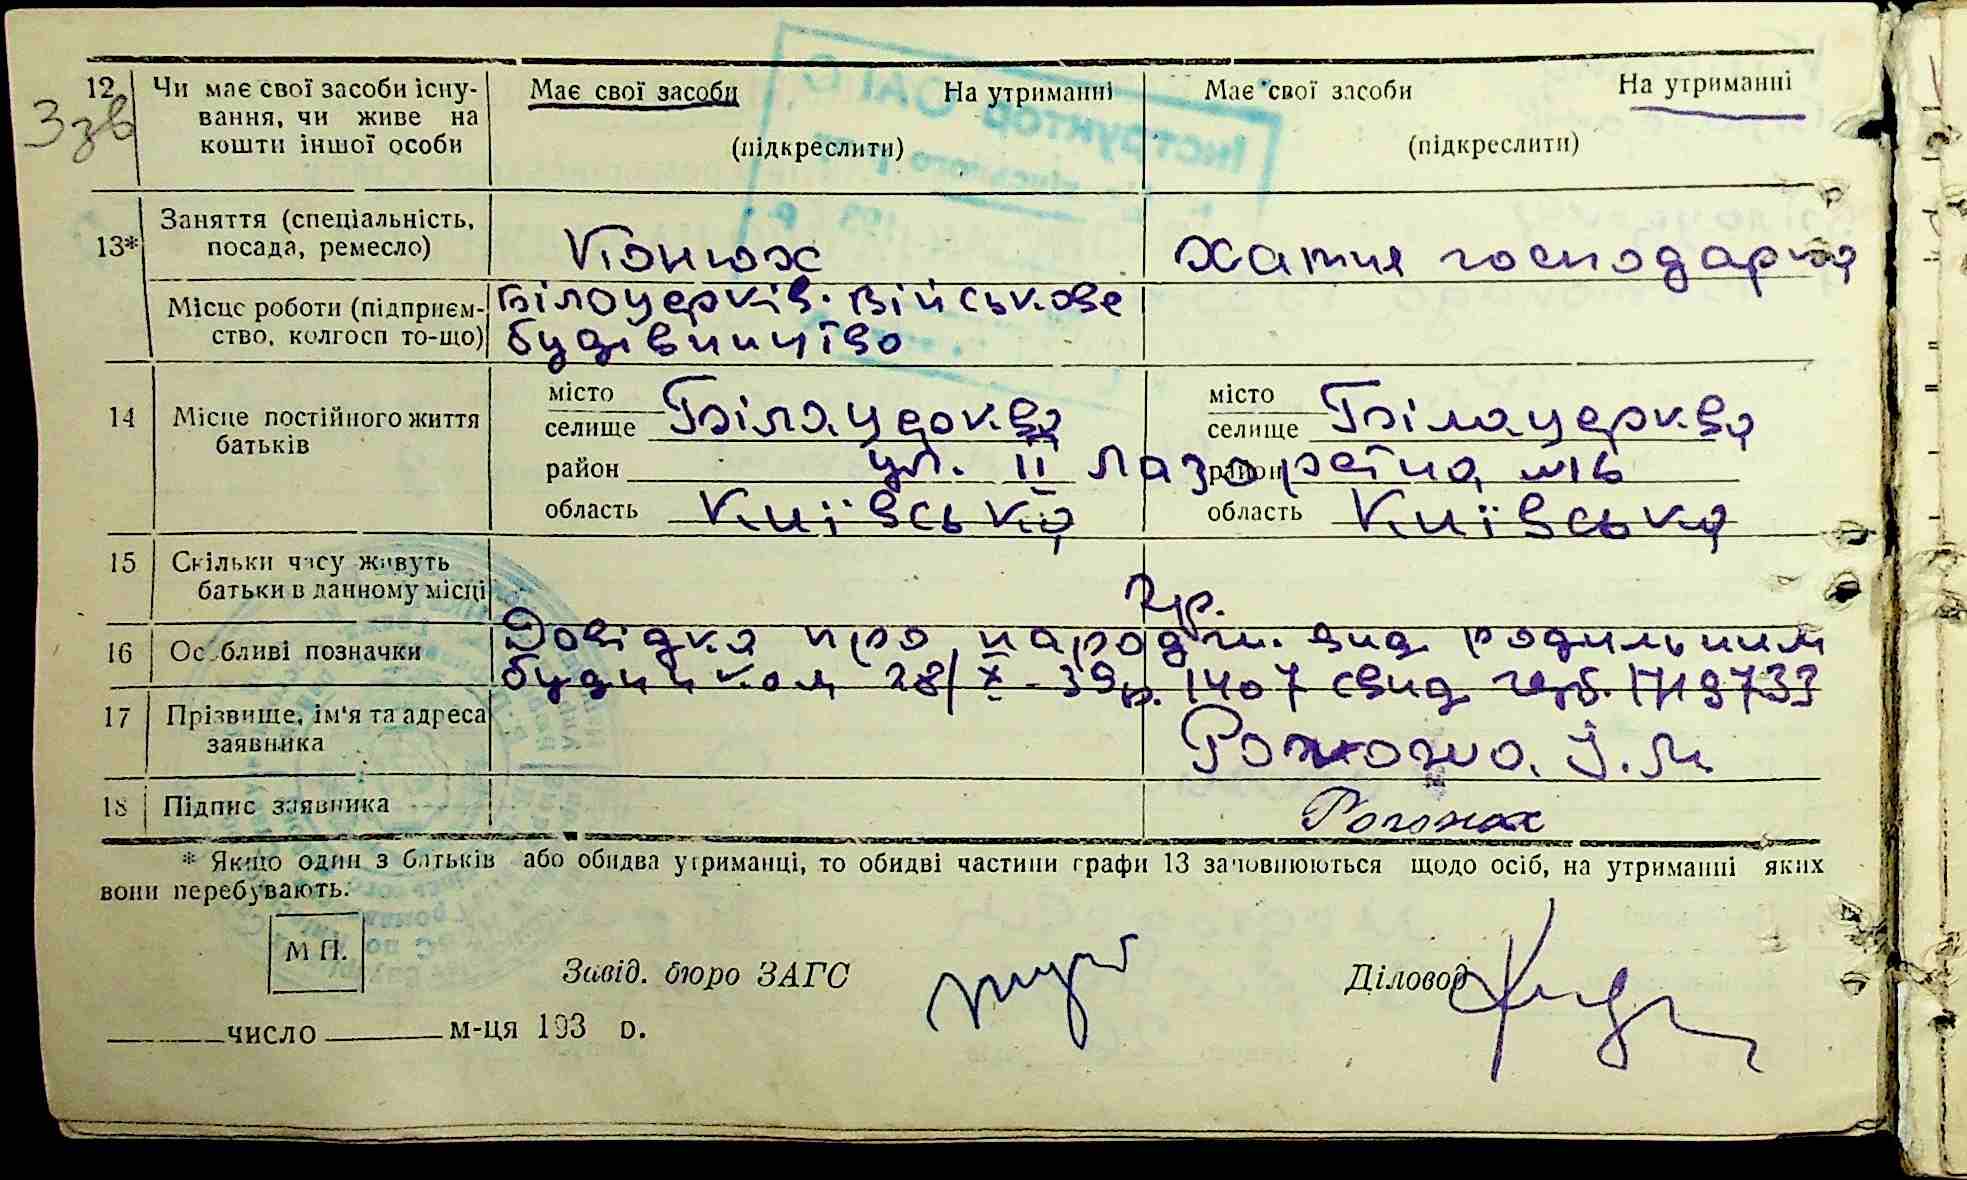 Ззв
12. Чи має свої засоби існу- Має свої засоби На утриманні Має свої засоби На утриманні
вання, чи живе на
кошти іншої особи (підкреслити) (підкреслити)
13* Заняття (спеціальність,
посада, ремесло) Конюх хатня господарка
Місце роботи (підприєм- Білоцерків. військове
ство, колгосп то-що) будівництво
14 Місце постійного життя
батьків
місто місто
селище Біла церква селище Біла церква
район ул. II Лазаретна, №16 район
область Київська область Київська
15 Скільки часу живуть
батьки в данному місці р.
16 Особливі позначки Довідка про народж. вид родильним
будинком 28/X-39р. 1407 свид герб. 1719733
17 Прізвище, ім'я та адреса
заявника І. М
18 Підпис заявника
* Якщо один з батьків або обидва утриманці, то обидві частини графи 13 заповнюються щодо осіб, на утриманні яких
вони перебувають.
М П.
Завід. бюро ЗАГС Діловод
число м-ця 193 р.